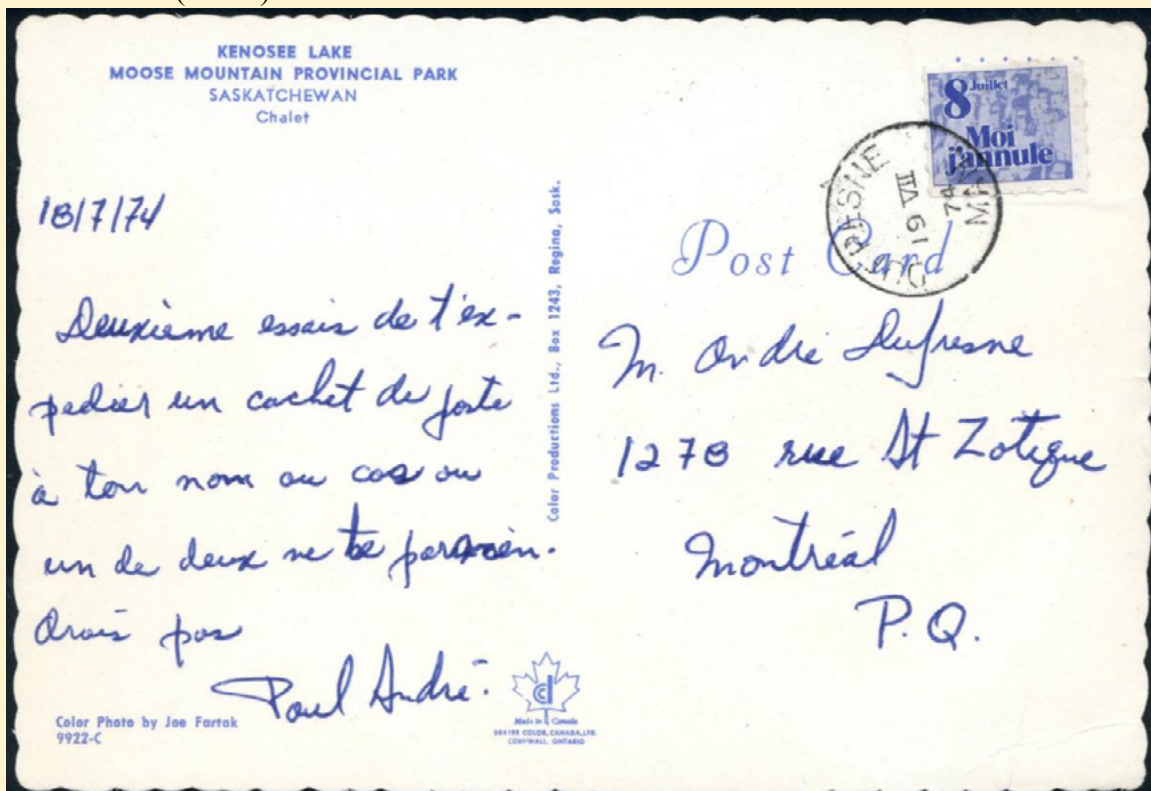 KENOSEE LAKE
MOOSE MOUNTAIN PROVINCIAL PARK
SASKATCHEWAN
Chalet
18/7/74
Deuxième essais de t'ex-
pedier un cachet de poste
à ton nom au cas ou
un de deux ne te parvien-
drais pas
Paul André.
Color Photo by Joe Fartak
9922-C
Color Productions Ltd., Box 1243, Regina, Sask.
Made in Canada
DEXTER COLOR, CANADA, LTD.
CORNWALL, ONTARIO
8 Juillet
Moi
j'annule
DUFRESNE
19 VII
74
MAN
Post Card
M. André Dufresne
1278 rue St Zotique
Montréal
P.Q.